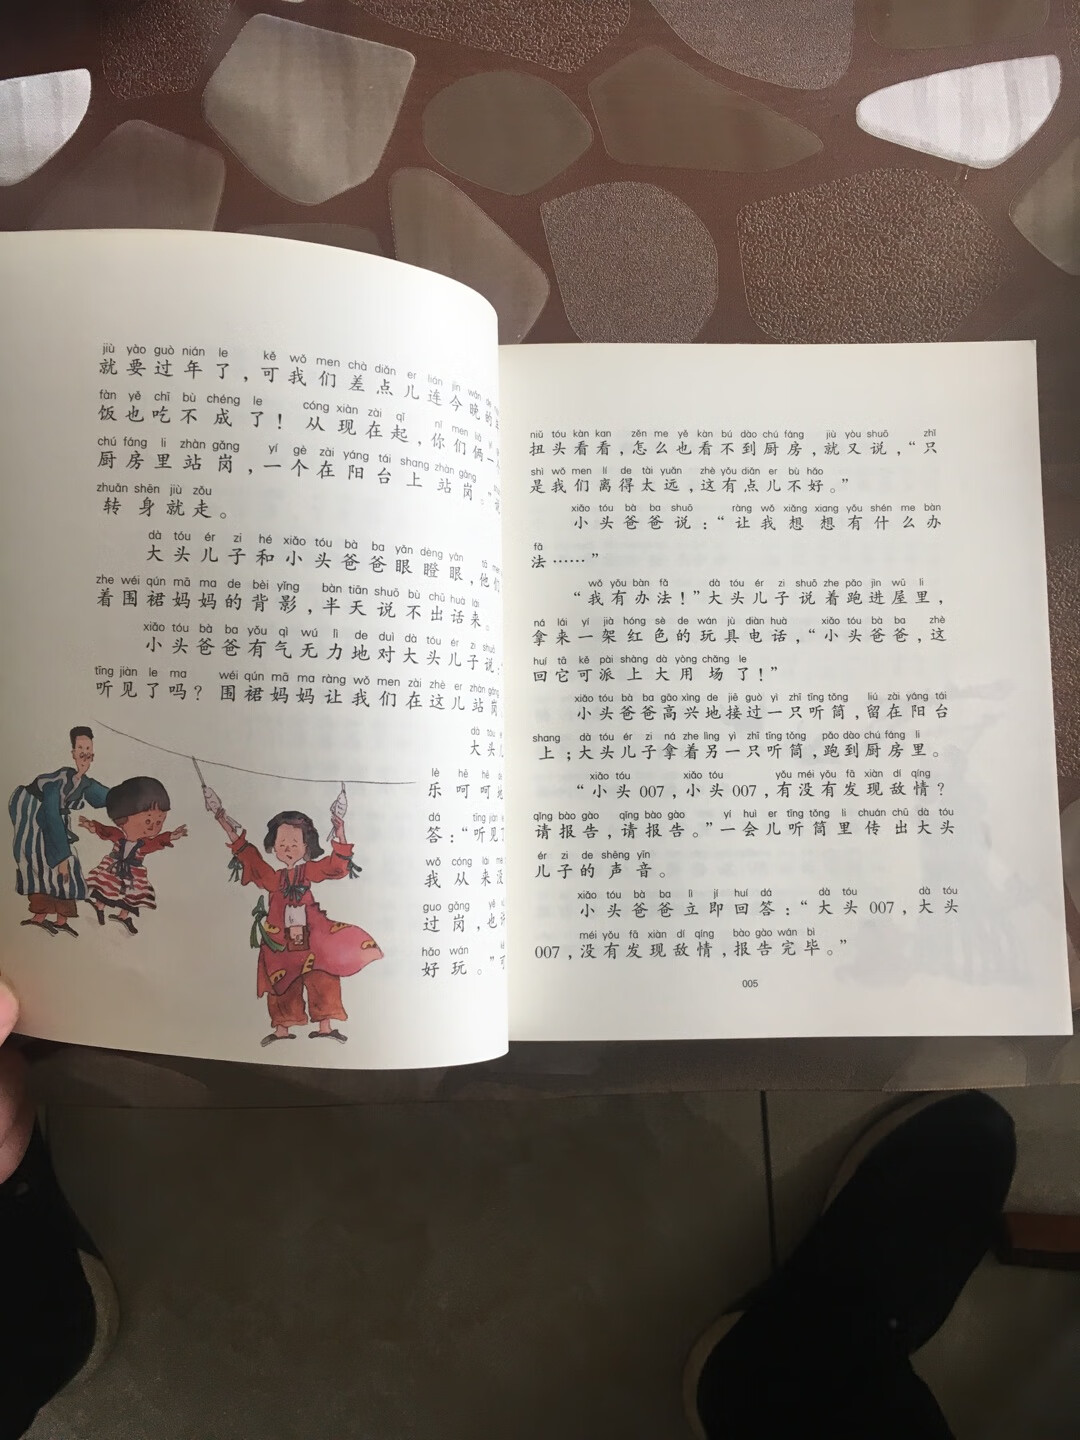 jiù yào guò nián le kě wǒ men chà diǎn er lián jīn wǎn de
就要过年了，可我们差点儿连今晚的
fàn yě chī bù chéng le cóng xiàn zài qǐ nǐ men liǎ yí
饭也吃不成了！从现在起，你们俩一
chú fáng li zhàn gǎng yí gè zài yáng tái shang zhàn gǎng
厨房里站岗，一个在阳台上站岗。”说
zhuǎn shēn jiù zǒu
转身就走。
dà tóu ér zi hé xiǎo tóu bà ba yǎn dèng yǎn tā men
大头儿子和小头爸爸眼瞪眼，他们
zhe wéi qún mā ma de bèi yǐng bàn tiān shuō bù chū huà lái
着围裙妈妈的背影，半天说不出话来。
xiǎo tóu bà ba yǒu qì wú lì de duì dà tóu ér zi shuō
小头爸爸有气无力地对大头儿子说：
tīng jiàn le ma wéi qún mā ma ràng wǒ men zài zhè er zhàn gǎng
听见了吗？围裙妈妈让我们在这儿站岗
dà tóu
大头儿
lè hē hē
乐呵呵地
dá tīng jiàn
答：“听见了
wǒ cóng lái
我从来没
guo gǎng yě
过岗，也许
hǎo wán
好玩。”可
niǔ tóu kàn kan zěn me yě kàn bú dào chú fáng jiù yòu shuō zhǐ
扭头看看，怎么也看不到厨房，就又说，“只
shì wǒ men lí de tài yuǎn zhè yǒu diǎn er bù hǎo
是我们离得太远，这有点儿不好。”
xiǎo tóu bà ba shuō ràng wǒ xiǎng xiang yǒu shén me bàn
小头爸爸说：“让我想想有什么办
fǎ
法……”
wǒ yǒu bàn fǎ dà tóu ér zi shuō zhe pǎo jìn wū li
“我有办法！”大头儿子说着跑进屋里，
ná lái yí jià hóng sè de wán jù diàn huà xiǎo tóu bà ba zhè
拿来一架红色的玩具电话，“小头爸爸，这
huí tā kě pài shàng dà yòng chǎng le
回它可派上大用场了！”
xiǎo tóu bà ba gāo xìng de jiē guò yì zhī tīng tǒng liú zài yáng tái
小头爸爸高兴地接过一只听筒，留在阳台
shang dà tóu ér zi ná zhe lìng yì zhī tīng tǒng pǎo dào chú fáng li
上；大头儿子拿着另一只听筒，跑到厨房里。
xiǎo tóu xiǎo tóu yǒu méi yǒu fā xiàn dí qíng
“小头007，小头007，有没有发现敌情？
qǐng bào gào qǐng bào gào yí huì er tīng tǒng li chuán chū dà tóu
请报告，请报告。”一会儿听筒里传出大头
ér zi de shēng yīn
儿子的声音。
xiǎo tóu bà ba lì jí huí dá dà tóu dà tóu
小头爸爸立即回答：“大头007，大头
méi yǒu fā xiàn dí qíng bào gào wán bì
007，没有发现敌情，报告完毕。”
005